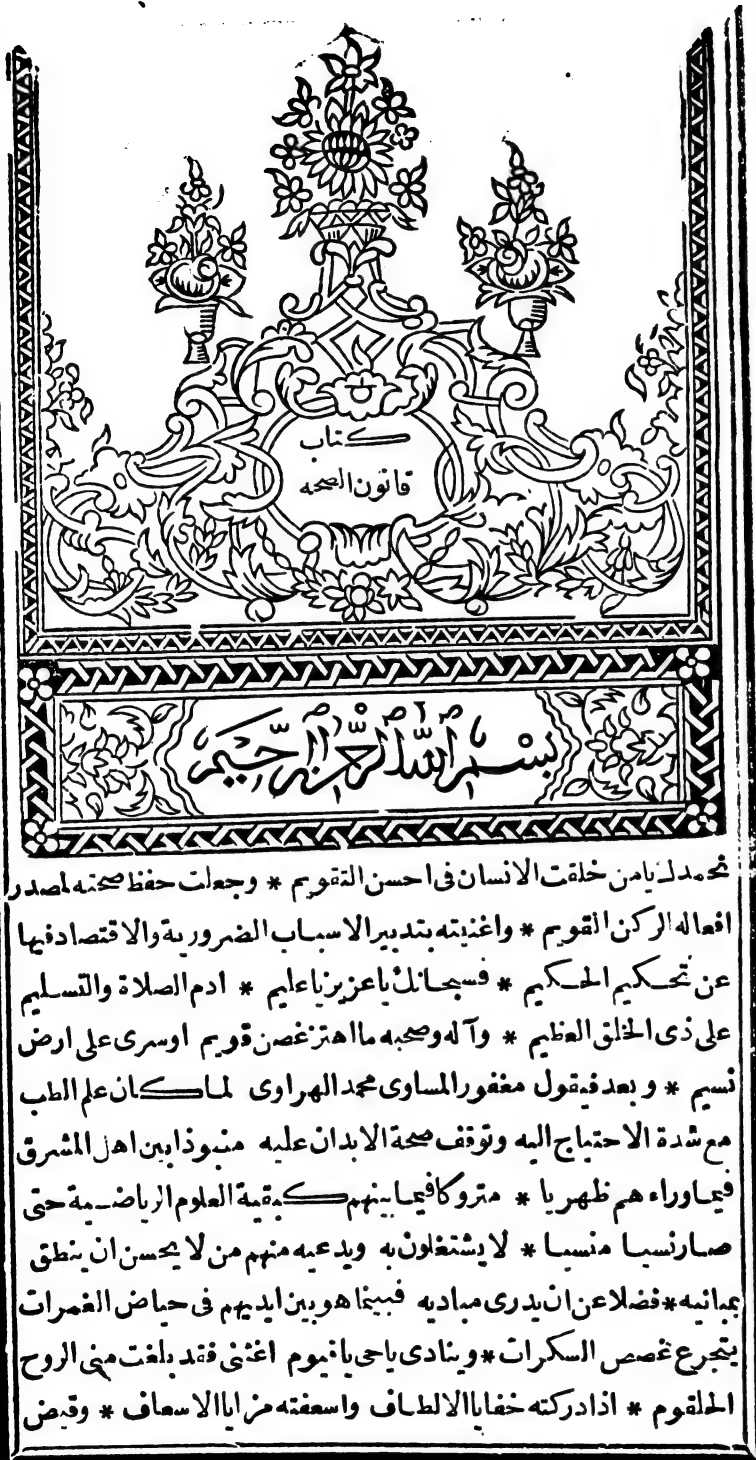 كتاب
قانون الصحه
بسم الله الرحمن الرحيم
نحمدك يا من خلقت الانسان فى احسن التقويم * وجعلت حفظ صحته لمصدر
افعاله الركن القويم * واغنيته بتدبير الاسباب الضرورية والاقتصاد فيها
عن تحكيم الحكيم * فسبحانك يا عزيز يا عليم * ادم الصلاة والتسليم
على ذى الخلق العظيم * وآله وصحبه ما اهتز غصن قويم او سرى على ارض
نسيم * وبعد فيقول مغفور المساوى محمد الهراوى لما كان علم الطب
مع شدة الاحتياج اليه وتوقف صحة الابدان عليه منبوذا بين اهل المشرق
فيما وراء هم ظهريا * متروكا فيما بينهم كبقية العلوم الرياضية حتى
صار نسيا منسيا * لا يشتغلون به ويدعيه منهم من لا يحسن ان ينطق
بمبانيه * فضلا عن ان يدرى مباديه فبينما هو بين ايديهم فى حياض الغمرات
يتجرع غصص السكرات * وينادى يا حى يا قيوم اغثنى فقد بلغت منى الروح
الحلقوم * اذ ادركته خفايا الالطاف واسعفته مزايا الاسعاف * وقيض